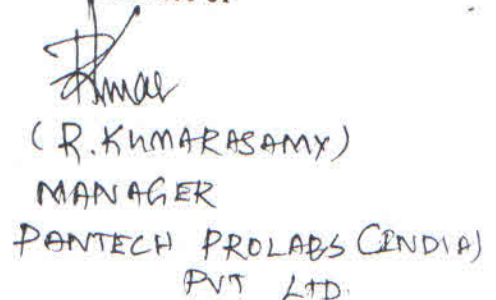 (R. KUMARASAMY)
MANAGER
PANTECH PROLABS (INDIA)
PVT LTD.